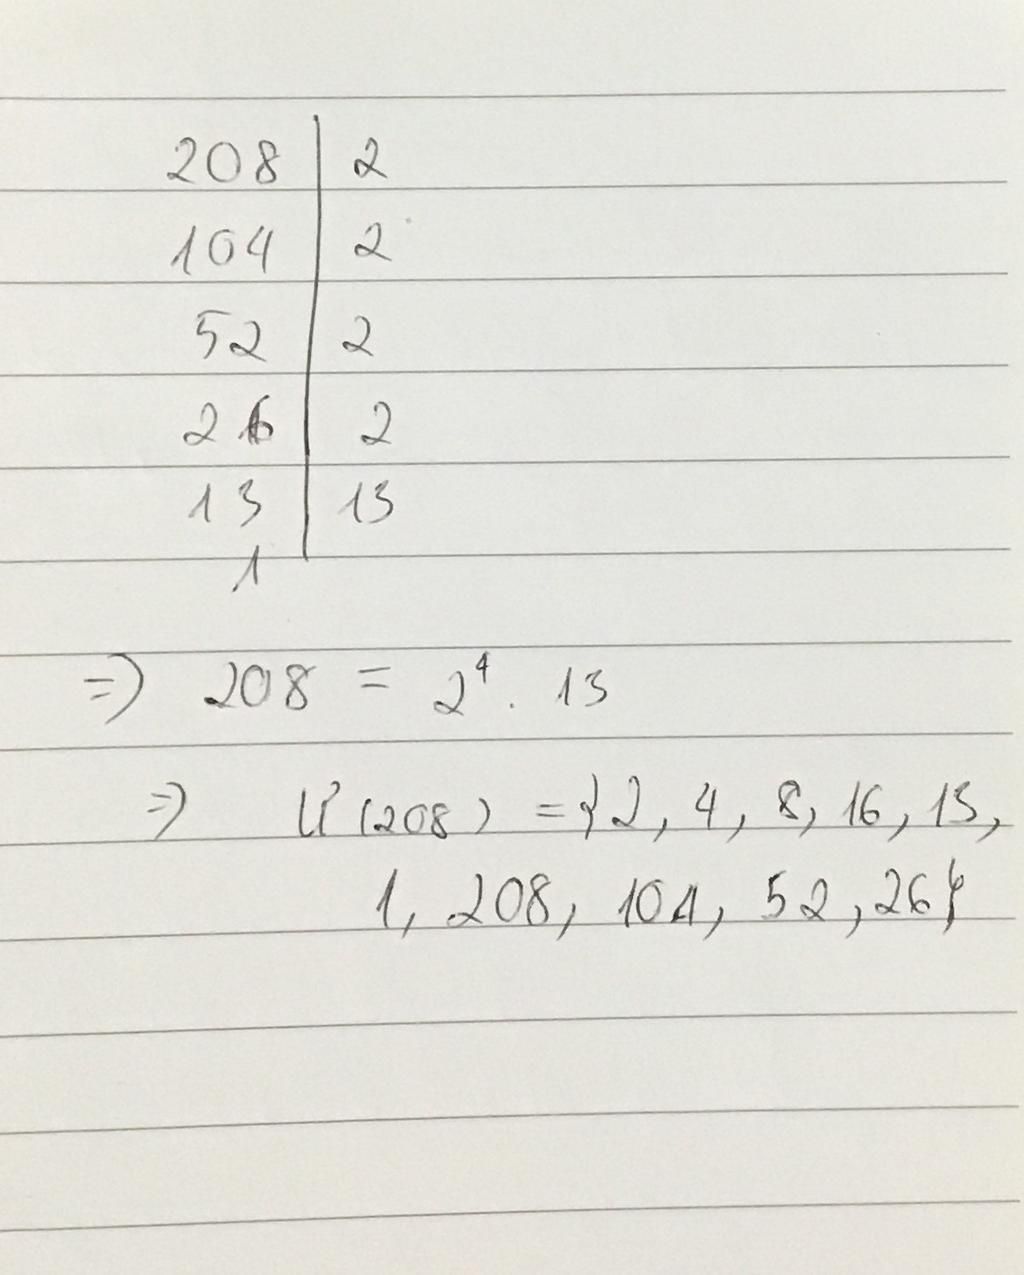 208 | 2
104 | 2
52 | 2
26 | 2
13 | 13
1
=> 208 = 2⁴ . 13
=> Ư(208) = {2, 4, 8, 16, 13,
1, 208, 104, 52, 26}